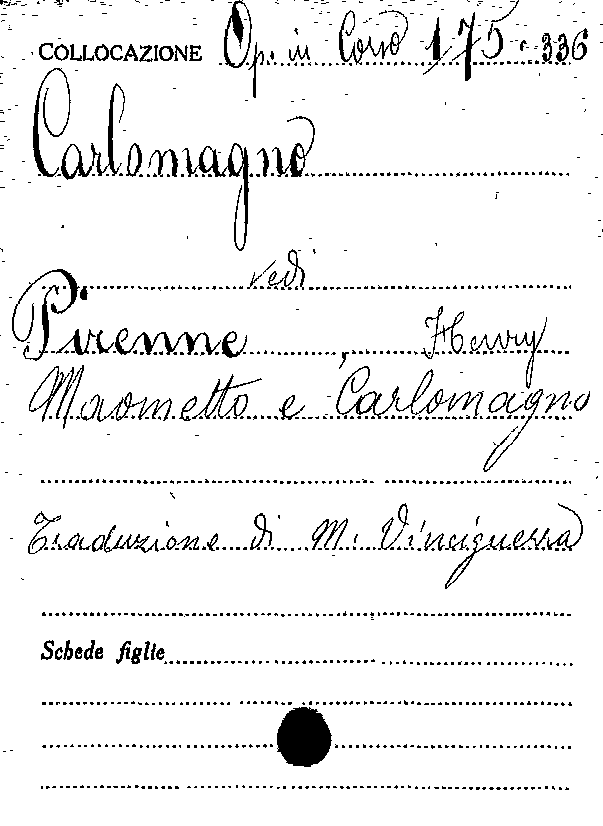 COLLOCAZIONE Op. in Corso 175.336
Carlomagno
vedi
Pirenne, Henry
Maometto e Carlomagno
Traduzione di M. Vinciguerra
Schede figlie